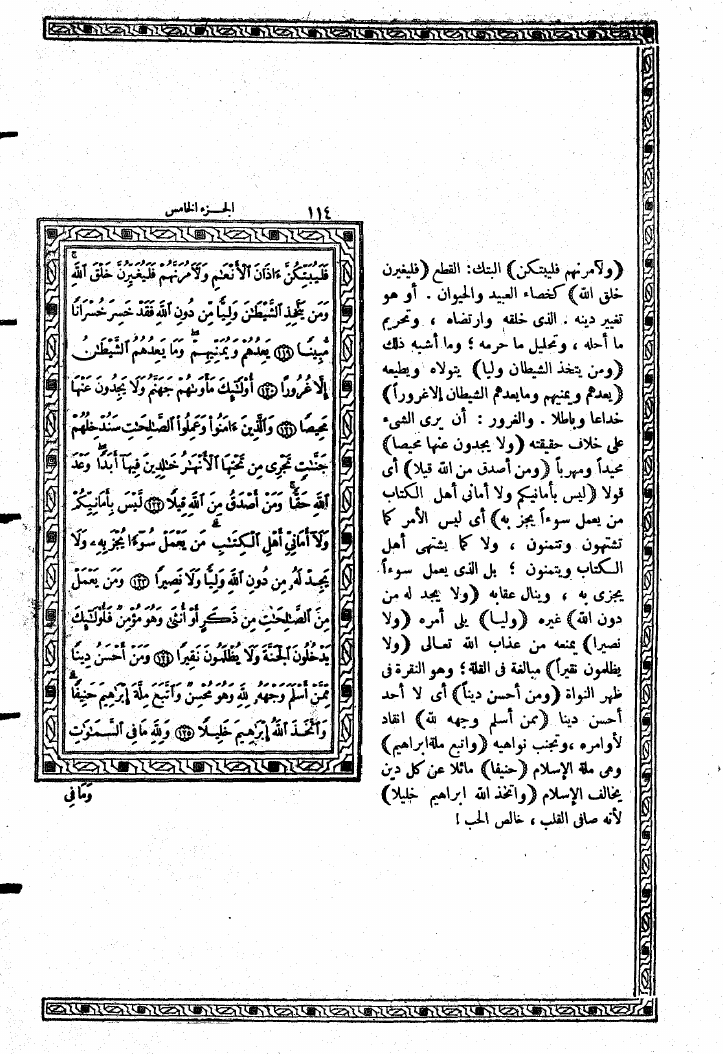 ١١٤
الجزء الخامس
فَلَيُبَتِّكُنَّ ءَاذَانَ ٱلْأَنْعَٰمِ وَلَءَامُرَنَّهُمْ فَلَيُغَيِّرُنَّ خَلْقَ ٱللَّهِ
وَمَن يَتَّخِذِ ٱلشَّيْطَٰنَ وَلِيًّا مِّن دُونِ ٱللَّهِ فَقَدْ خَسِرَ خُسْرَانًا
مُّبِينًا ١١٩ يَعِدُهُمْ وَيُمَنِّيهِمْ وَمَا يَعِدُهُمُ ٱلشَّيْطَٰنُ
إِلَّا غُرُورًا ١٢٠ أُوْلَٰٓئِكَ مَأْوَىٰهُمْ جَهَنَّمُ وَلَا يَجِدُونَ عَنْهَا
مَحِيصًا ١٢١ وَٱلَّذِينَ ءَامَنُوا۟ وَعَمِلُوا۟ ٱلصَّٰلِحَٰتِ سَنُدْخِلُهُمْ
جَنَّٰتٍ تَجْرِى مِن تَحْتِهَا ٱلْأَنْهَٰرُ خَٰلِدِينَ فِيهَآ أَبَدًا وَعْدَ
ٱللَّهِ حَقًّا وَمَنْ أَصْدَقُ مِنَ ٱللَّهِ قِيلًا ١٢٢ لَّيْسَ بِأَمَانِيِّكُمْ
وَلَآ أَمَانِىِّ أَهْلِ ٱلْكِتَٰبِ مَن يَعْمَلْ سُوٓءًا يُجْزَ بِهِۦ وَلَا
يَجِدْ لَهُۥ مِن دُونِ ٱللَّهِ وَلِيًّا وَلَا نَصِيرًا ١٢٣ وَمَن يَعْمَلْ
مِنَ ٱلصَّٰلِحَٰتِ مِن ذَكَرٍ أَوْ أُنثَىٰ وَهُوَ مُؤْمِنٌ فَأُوْلَٰٓئِكَ
يَدْخُلُونَ ٱلْجَنَّةَ وَلَا يُظْلَمُونَ نَقِيرًا ١٢٤ وَمَنْ أَحْسَنُ دِينًا
مِّمَّنْ أَسْلَمَ وَجْهَهُۥ لِلَّهِ وَهُوَ مُحْسِنٌ وَٱتَّبَعَ مِلَّةَ إِبْرَٰهِيمَ حَنِيفًا
وَٱتَّخَذَ ٱللَّهُ إِبْرَٰهِيمَ خَلِيلًا ١٢٥ وَلِلَّهِ مَا فِى ٱلسَّمَٰوَٰتِ
وَمَا فِى
(ولآمرنهم فليبتكن) البتك: القطع (فليغيرن
خلق الله) كخصاء العبيد والحيوان . أو هو
تغيير دينه . الذى خلقه وارتضاه ، وتحريم
ما أحله ، وتحليل ما حرمه ؛ وما أشبه ذلك
(ومن يتخذ الشيطان وليا) يتولاه ويطيعه
(يعدهم ويمنيهم وما يعدهم الشيطان إلا غروراً)
خداعا وباطلا . والغرور : أن يرى الشىء
على خلاف حقيقته (ولا يجدون عنها محيصا)
محيداً ومهرباً (ومن أصدق من الله قيلا) أى
قولا (ليس بأمانيكم ولا أمانى أهل الكتاب
من يعمل سوءاً يجز به) أى ليس الأمر كما
تشتهون وتتمنون ، ولا كما يشتهى أهل
الكتاب ويتمنون ؛ بل الذى يعمل سوءاً
يجزى به ، وينال عقابه (ولا يجد له من
دون الله) غيره (وليا) يلى أمره (ولا
نصيرا) يمنعه من عذاب الله تعالى (ولا
يظلمون نقيراً) مبالغة فى القلة؛ وهو النقرة فى
ظهر النواة (ومن أحسن ديناً) أى لا أحد
أحسن دينا (ممن أسلم وجهه لله) انقاد
لأوامره ،وتجنب نواهيه (واتبع ملة ابراهيم)
وهى ملة الإسلام (حنيفا) مائلا عن كل دين
يخالف الإسلام (واتخذ الله ابراهيم خليلا)
لأنه صافى القلب ، خالص الحب !